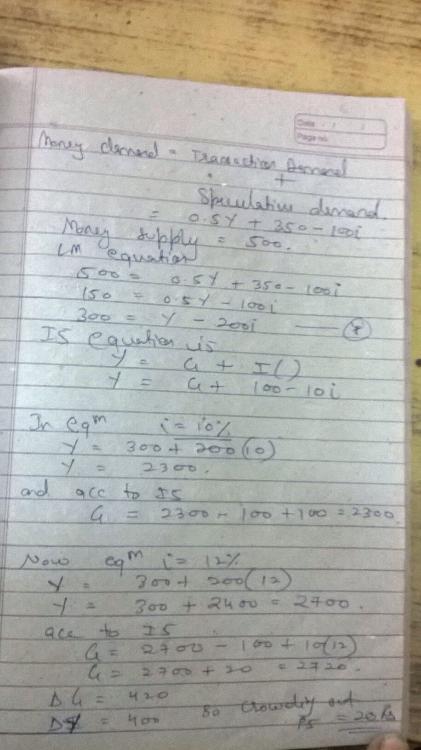 Date
Page no.
Money demand = Transaction Demand
+
Speculative demand.
= 0.5Y + 350 - 100i
Money supply = 500.
LM equation
500 = 0.5Y + 350 - 100i
150 = 0.5Y - 100i
300 = Y - 200i
IS equation is
Y = G + I()
Y = G + 100 - 10i
In eqm i = 10%
Y = 300 + 200(10)
Y = 2300.
and acc to IS
G = 2300 - 100 + 100 = 2300.
Now eqm i = 12%
Y = 300 + 200(12)
Y = 300 + 2400 = 2700.
acc to IS
G = 2700 - 100 + 10(12)
G = 2700 + 20 = 2720.
ΔG = 420
ΔY = 400 so Crowding out
= 20 Rs